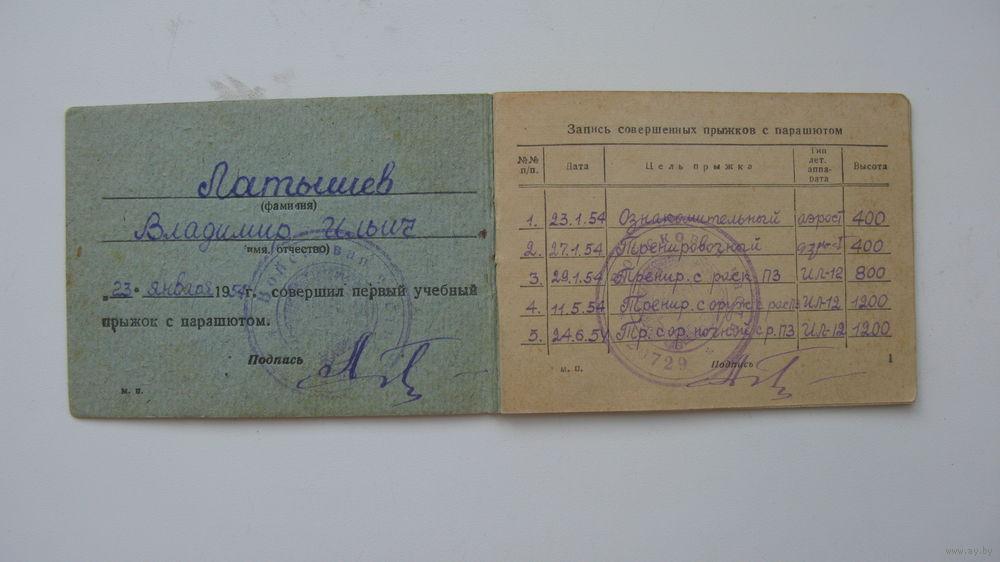 Латышев
(фамилия)
Владимир Ильич
имя, отчество)
„23" января 1954г. совершил первый учебный
прыжок с парашютом.
Подпись
м. п.
Запись совершенных прыжков с парашютом
№№ п/п. Дата Цель прыжка Тип лет. аппарата Высота
1. 23.1.54 Ознакомительный аэрост 400
2. 27.1.54 Тренировочный аэрост 400
3. 29.1.54 Тренир. с раск. ПЗ ИЛ-12 800
4. 11.5.54 Тренир. с оруж. с расп. ИЛ-12 1200
5. 24.6.54 Тр. с ор. ночный с р. ПЗ ИЛ-12 1200
729
м. п.
Подпись
1
www.ay.by